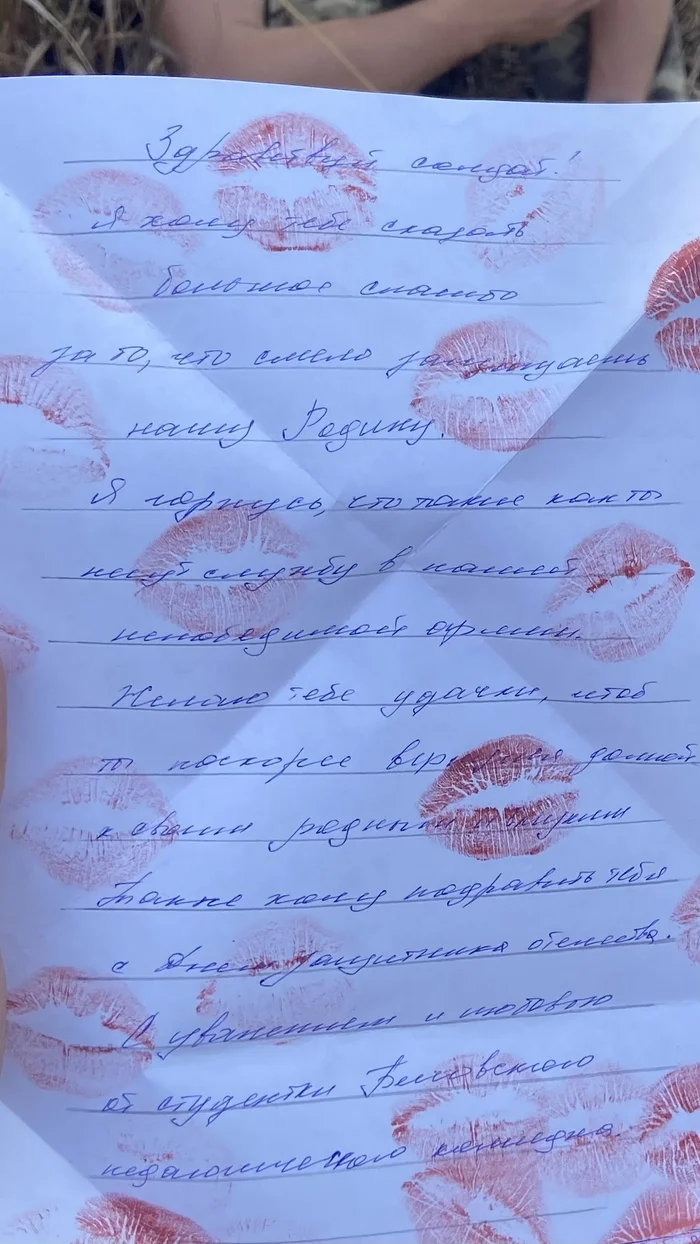 Здравствуй солдат!
Я хочу тебе сказать
большое спасибо
за то, что смело защищаешь
нашу Родину.
Я горжусь, что такие как ты
несут службу в нашей
непобедимой армии.
Желаю тебе удачки, чтоб
ты поскорее вернулся домой
к своим родным и близким
Также хочу поздравить тебя
с Днем защитника отечества.
С уважением и любовью
от студентки Беловского
педагогического колледжа.